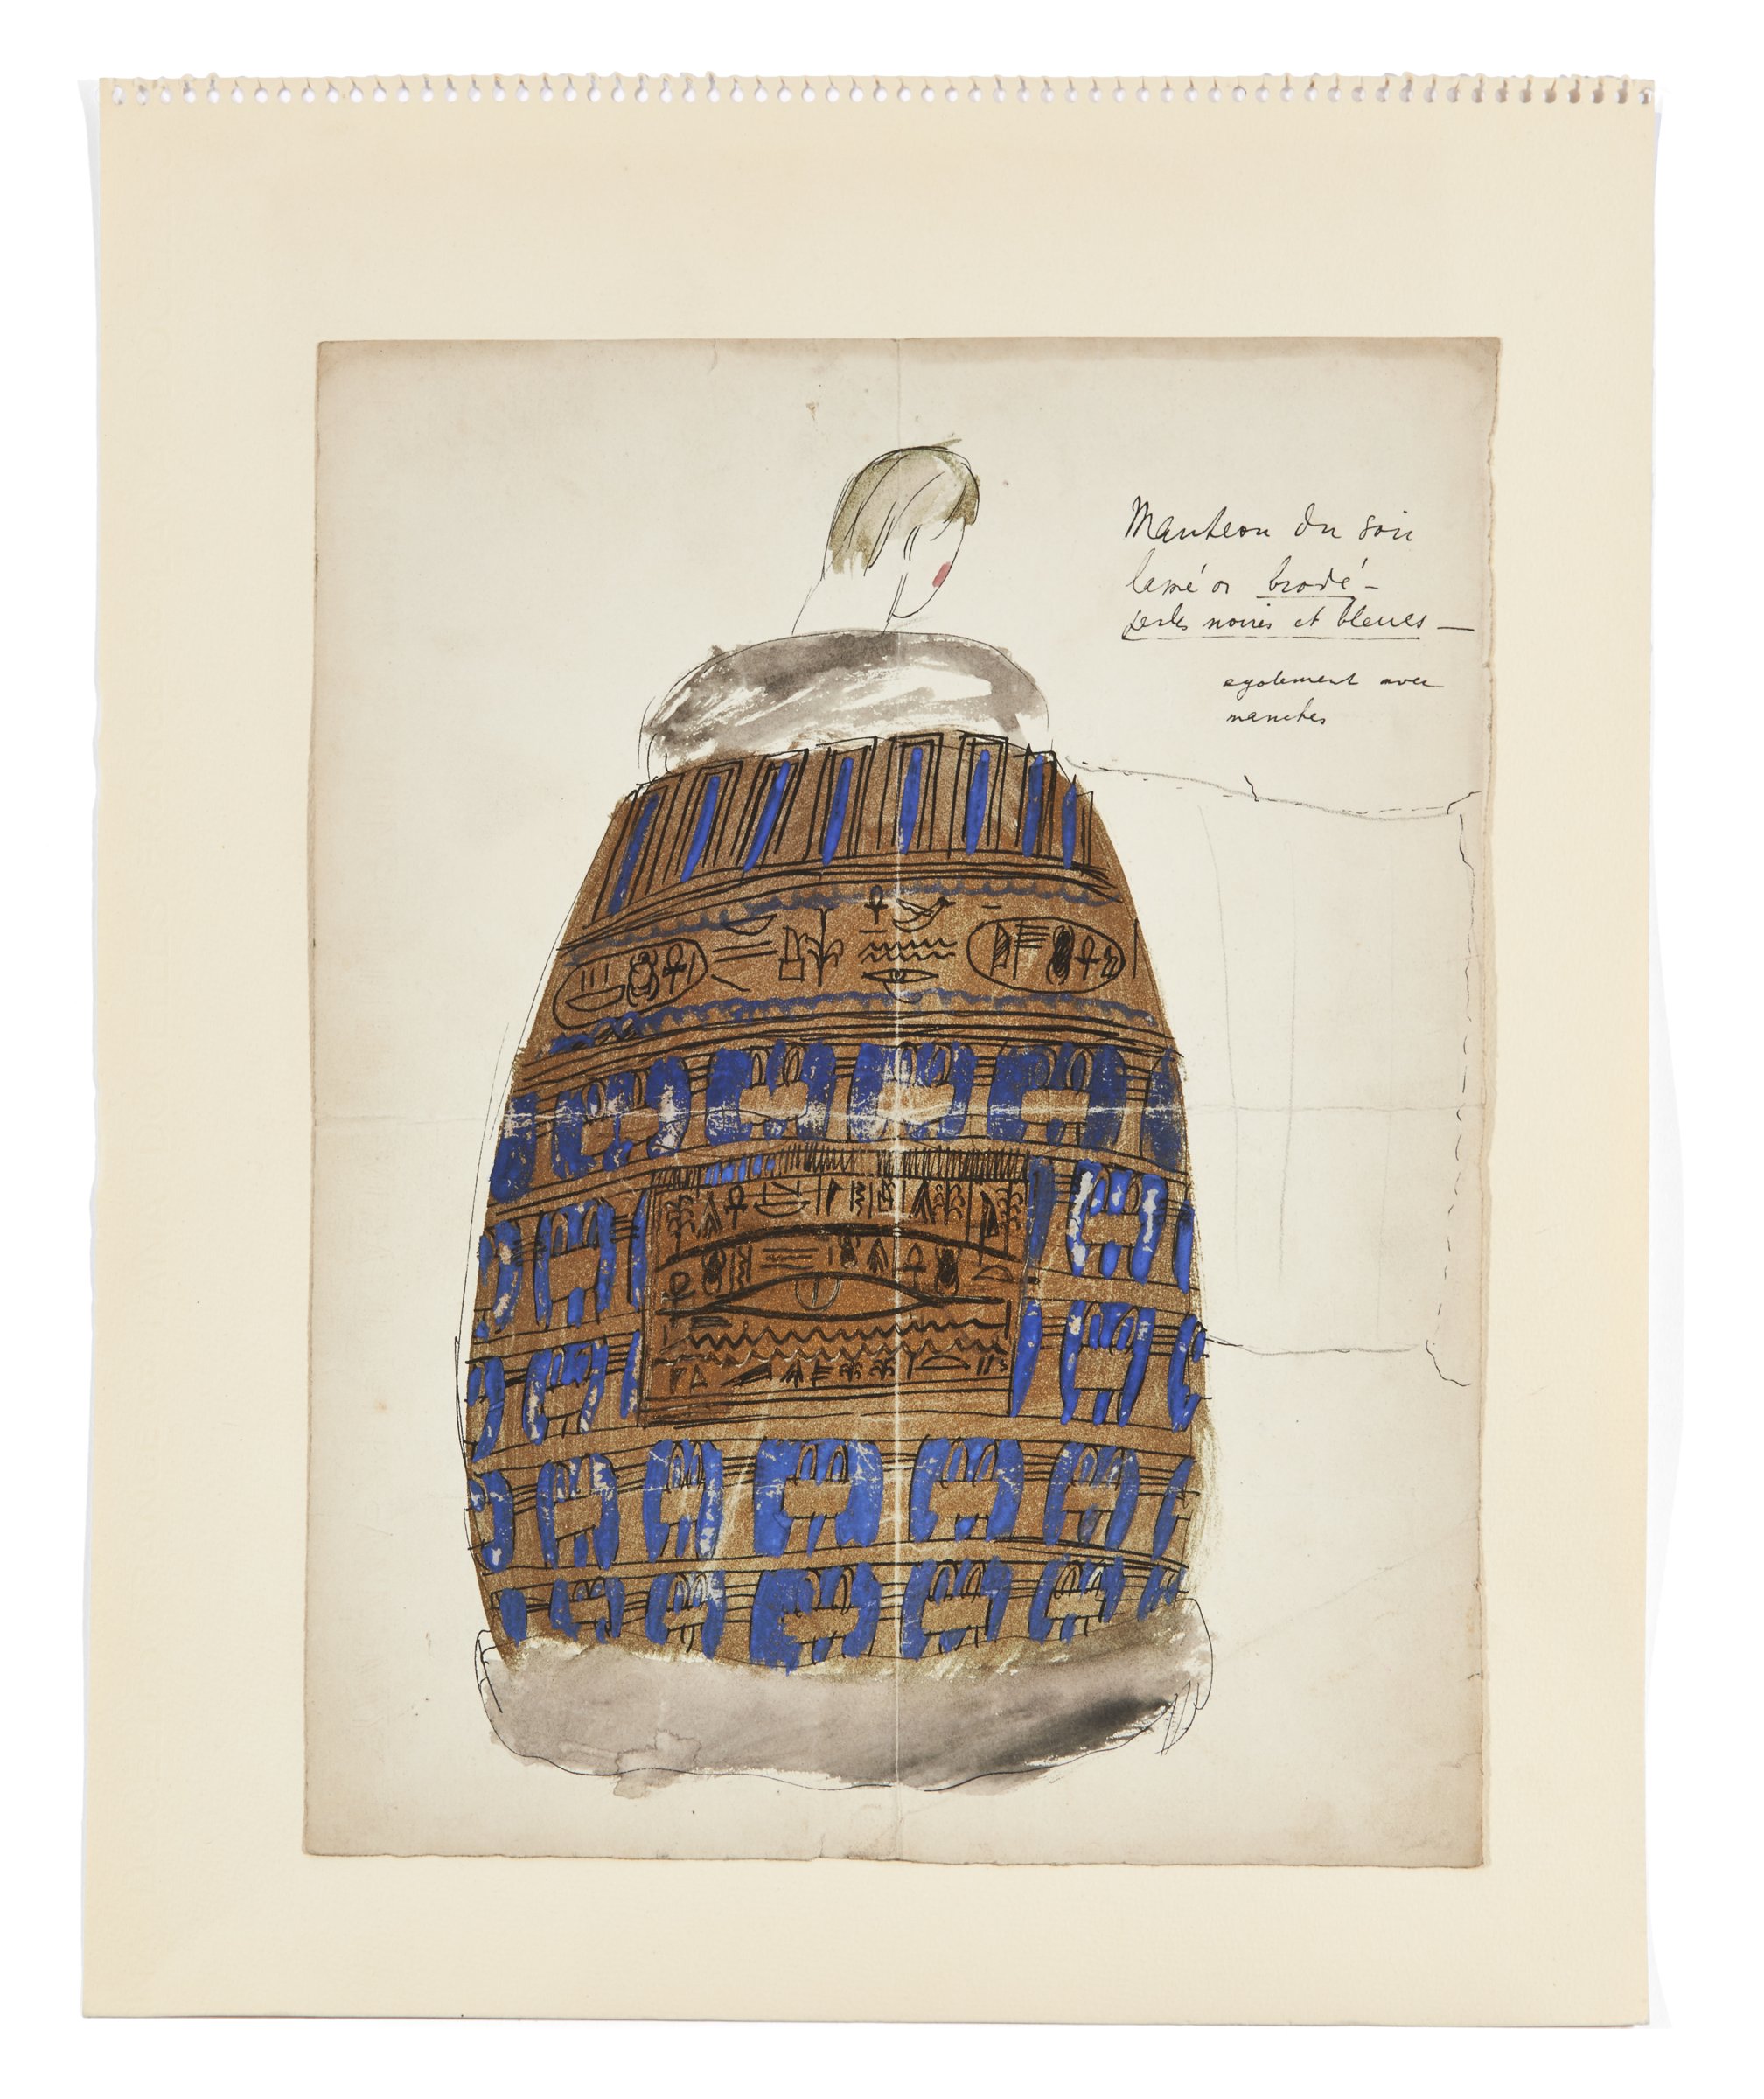 Manteau du soir
lamé or brodé –
perles noires et bleues –
egalement avec
manches